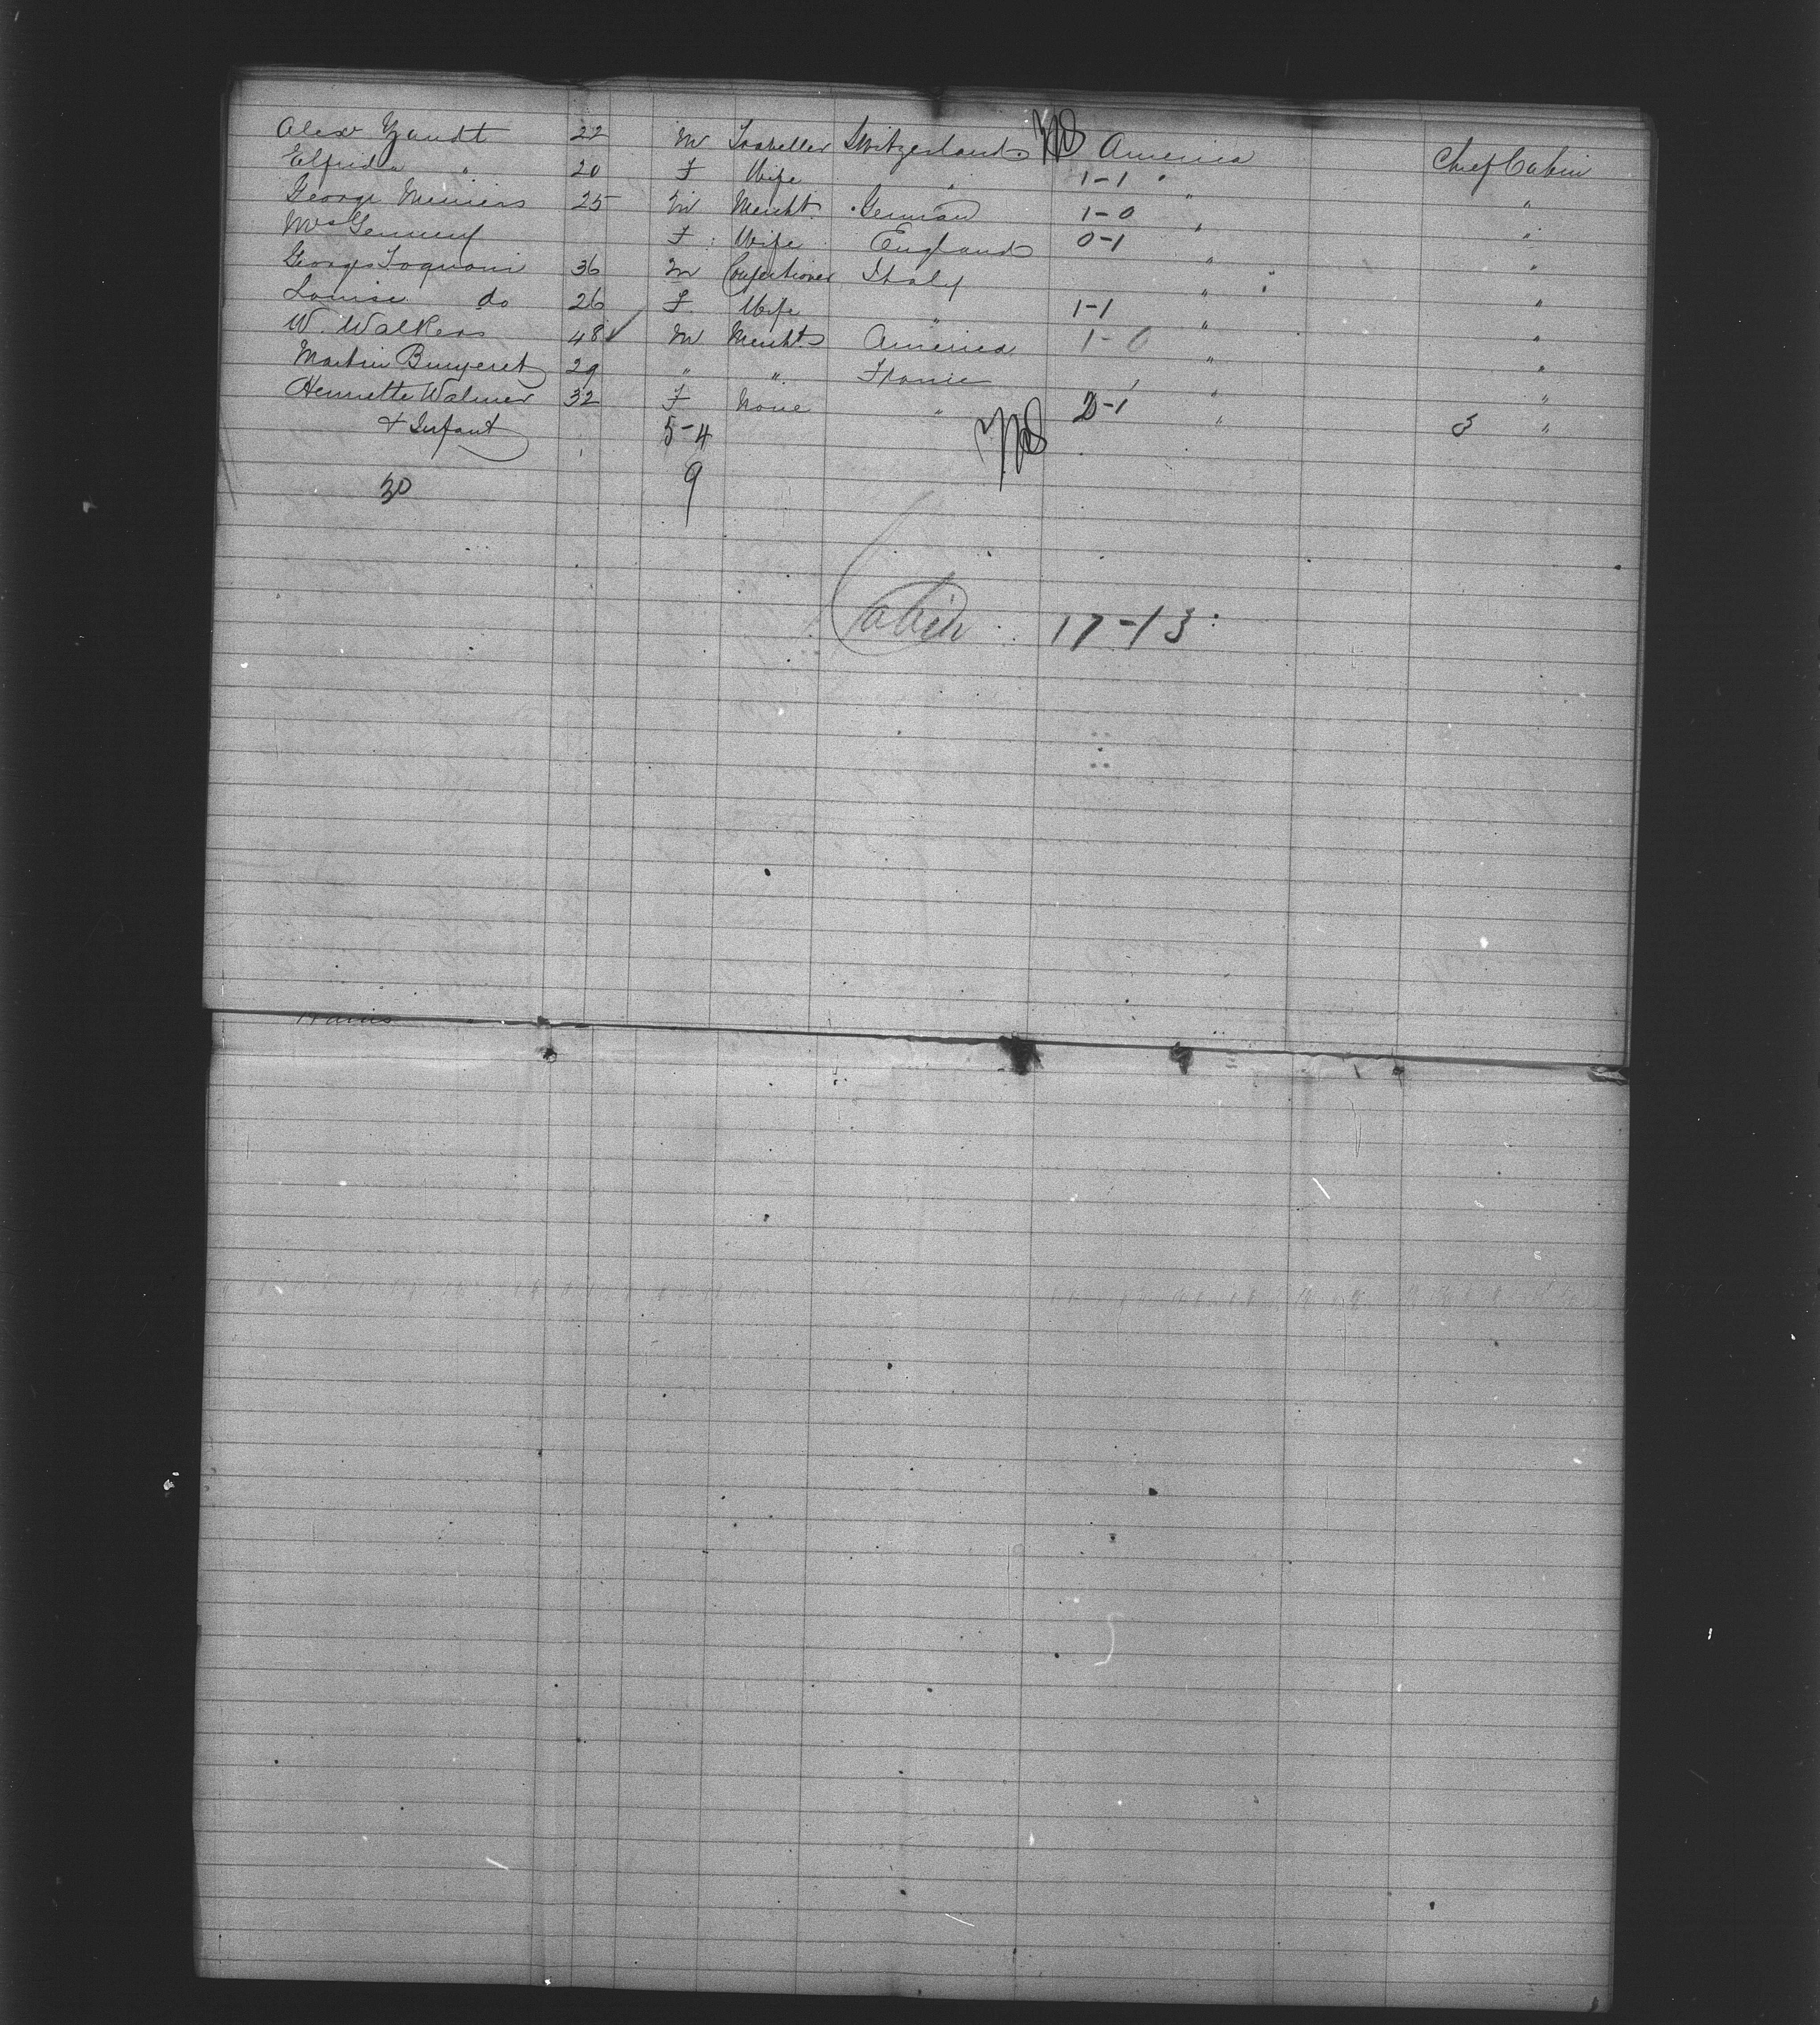 Alex Zandt 22 M Traveller Switzerland America Chief Cabin
Elfrida " 20 F Wife " 1-1 " "
George Meiners 25 M Mercht. German 1-0 " "
Mrs F Wife England 0-1 " "
George Toquoni 36 M Confectioner Italy " "
Louise do 26 F. Wife " 1-1 " "
W. Walkers 48 M Mercht America 1-0 " "
Martin 29 " " France " "
Henriette Walmer 32 F None " 2-1 " "
& Infant 5-4 3
30 9
Cabin 17-13